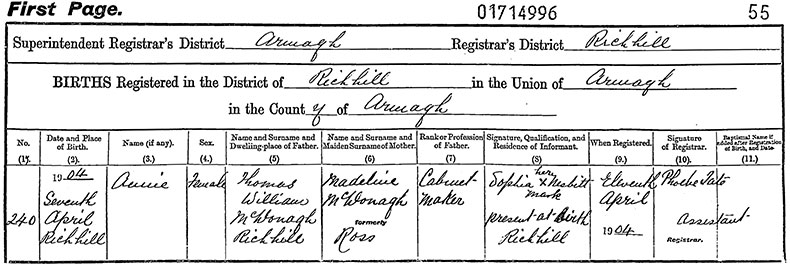 First Page. 01714996 55
Superintendent Registrar's District Armagh Registrar's District Richhill
BIRTHS Registered in the District of Richhill in the Union of Armagh
in the County of Armagh
No. Date and Place of Birth. Name (if any). Sex. Name and Surname and Dwelling-place of Father. Name and Surname and Maiden Surname of Mother. Rank or Profession of Father. Signature, Qualification, and Residence of Informant. When Registered. Signature of Registrar. Baptismal Name if added after Registration of Birth, and Date.
(1). (2). (3.) (4.) (5) (6) (7) (8) (9.) (10). (11.)
1904 Annie Female Thomas Madeline Cabinet Sophia her x mark Nesbitt Eleventh Phoebe Tate
Seventh William McDonagh Maker April
240 April McDonagh formerly present at Birth 1904 Assistant
Richhill Richhill Ross Richhill Registrar.